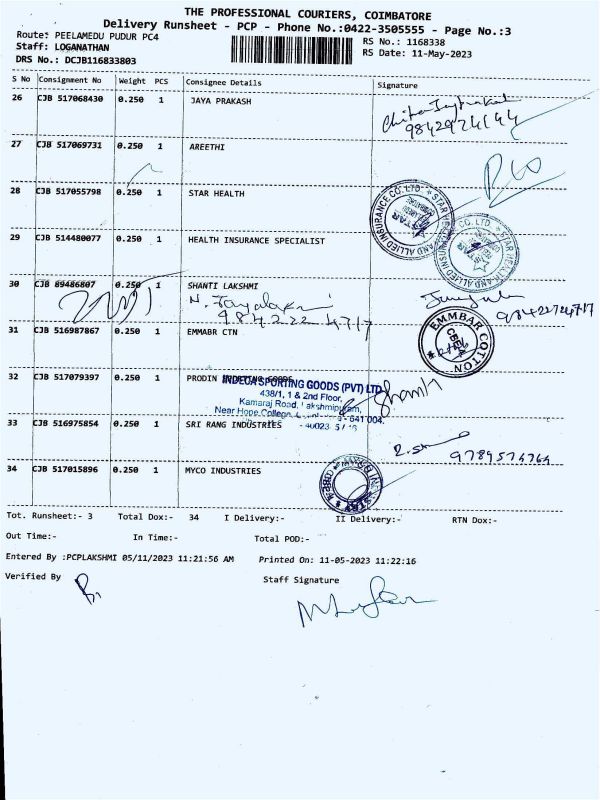 THE PROFESSIONAL COURIERS, COIMBATORE
Delivery Runsheet - PCP - Phone No.:0422-3505555 - Page No.:3
Route: PEELAMEDU PUDUR PC4
RS No.: 1168338
Staff: LOGANATHAN
RS Date: 11-May-2023
DRS No.: DCJB116833803
S No Consignment No Weight PCS Consignee Details Signature
26 CJB 517068430 0.250 1 JAYA PRAKASH
27 CJB 517069731 0.250 1 AREETHI
28 CJB 517055798 0.250 1 STAR HEALTH
29 CJB 514480077 0.250 1 HEALTH INSURANCE SPECIALIST
30 CJB 89486807 0.250 1 SHANTI LAKSHMI
N. Jayalaxmi
31 CJB 516987867 0.250 1 EMMABR CTN
EMMBAR COTTON
32 CJB 517079397 0.250 1 PRODIN
INDECA SPORTING GOODS (PVT) LTD
438/1, 1 & 2nd Floor,
Kamaraj Road, Lakshmipuram,
Near Hope College,
- 641 004.
33 CJB 516975854 0.250 1 SRI RANG INDUSTRIES
9789574764
34 CJB 517015896 0.250 1 MYCO INDUSTRIES
Tot. Runsheet:- 3 Total Dox:- 34 I Delivery:- II Delivery:- RTN Dox:-
Out Time:- In Time:- Total POD:-
Entered By :PCPLAKSHMI 05/11/2023 11:21:56 AM Printed On: 11-05-2023 11:22:16
Verified By Staff Signature